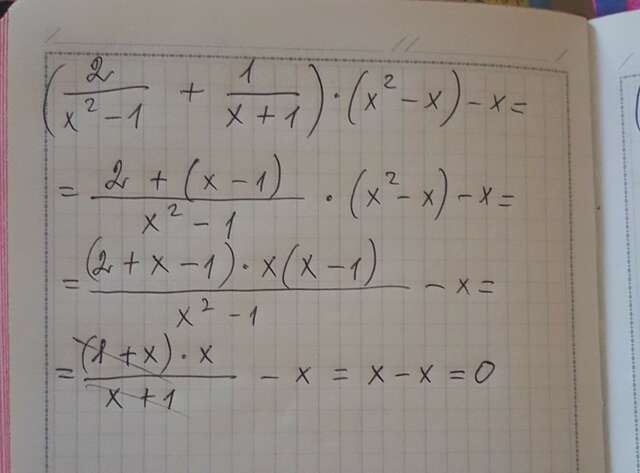 (2/(x² - 1) + 1/(x + 1)) · (x² - x) - x =
= (2 + (x - 1))/(x² - 1) · (x² - x) - x =
= ((2 + x - 1) · x(x - 1))/(x² - 1) - x =
= ((1 + x) · x)/(x + 1) - x = x - x = 0